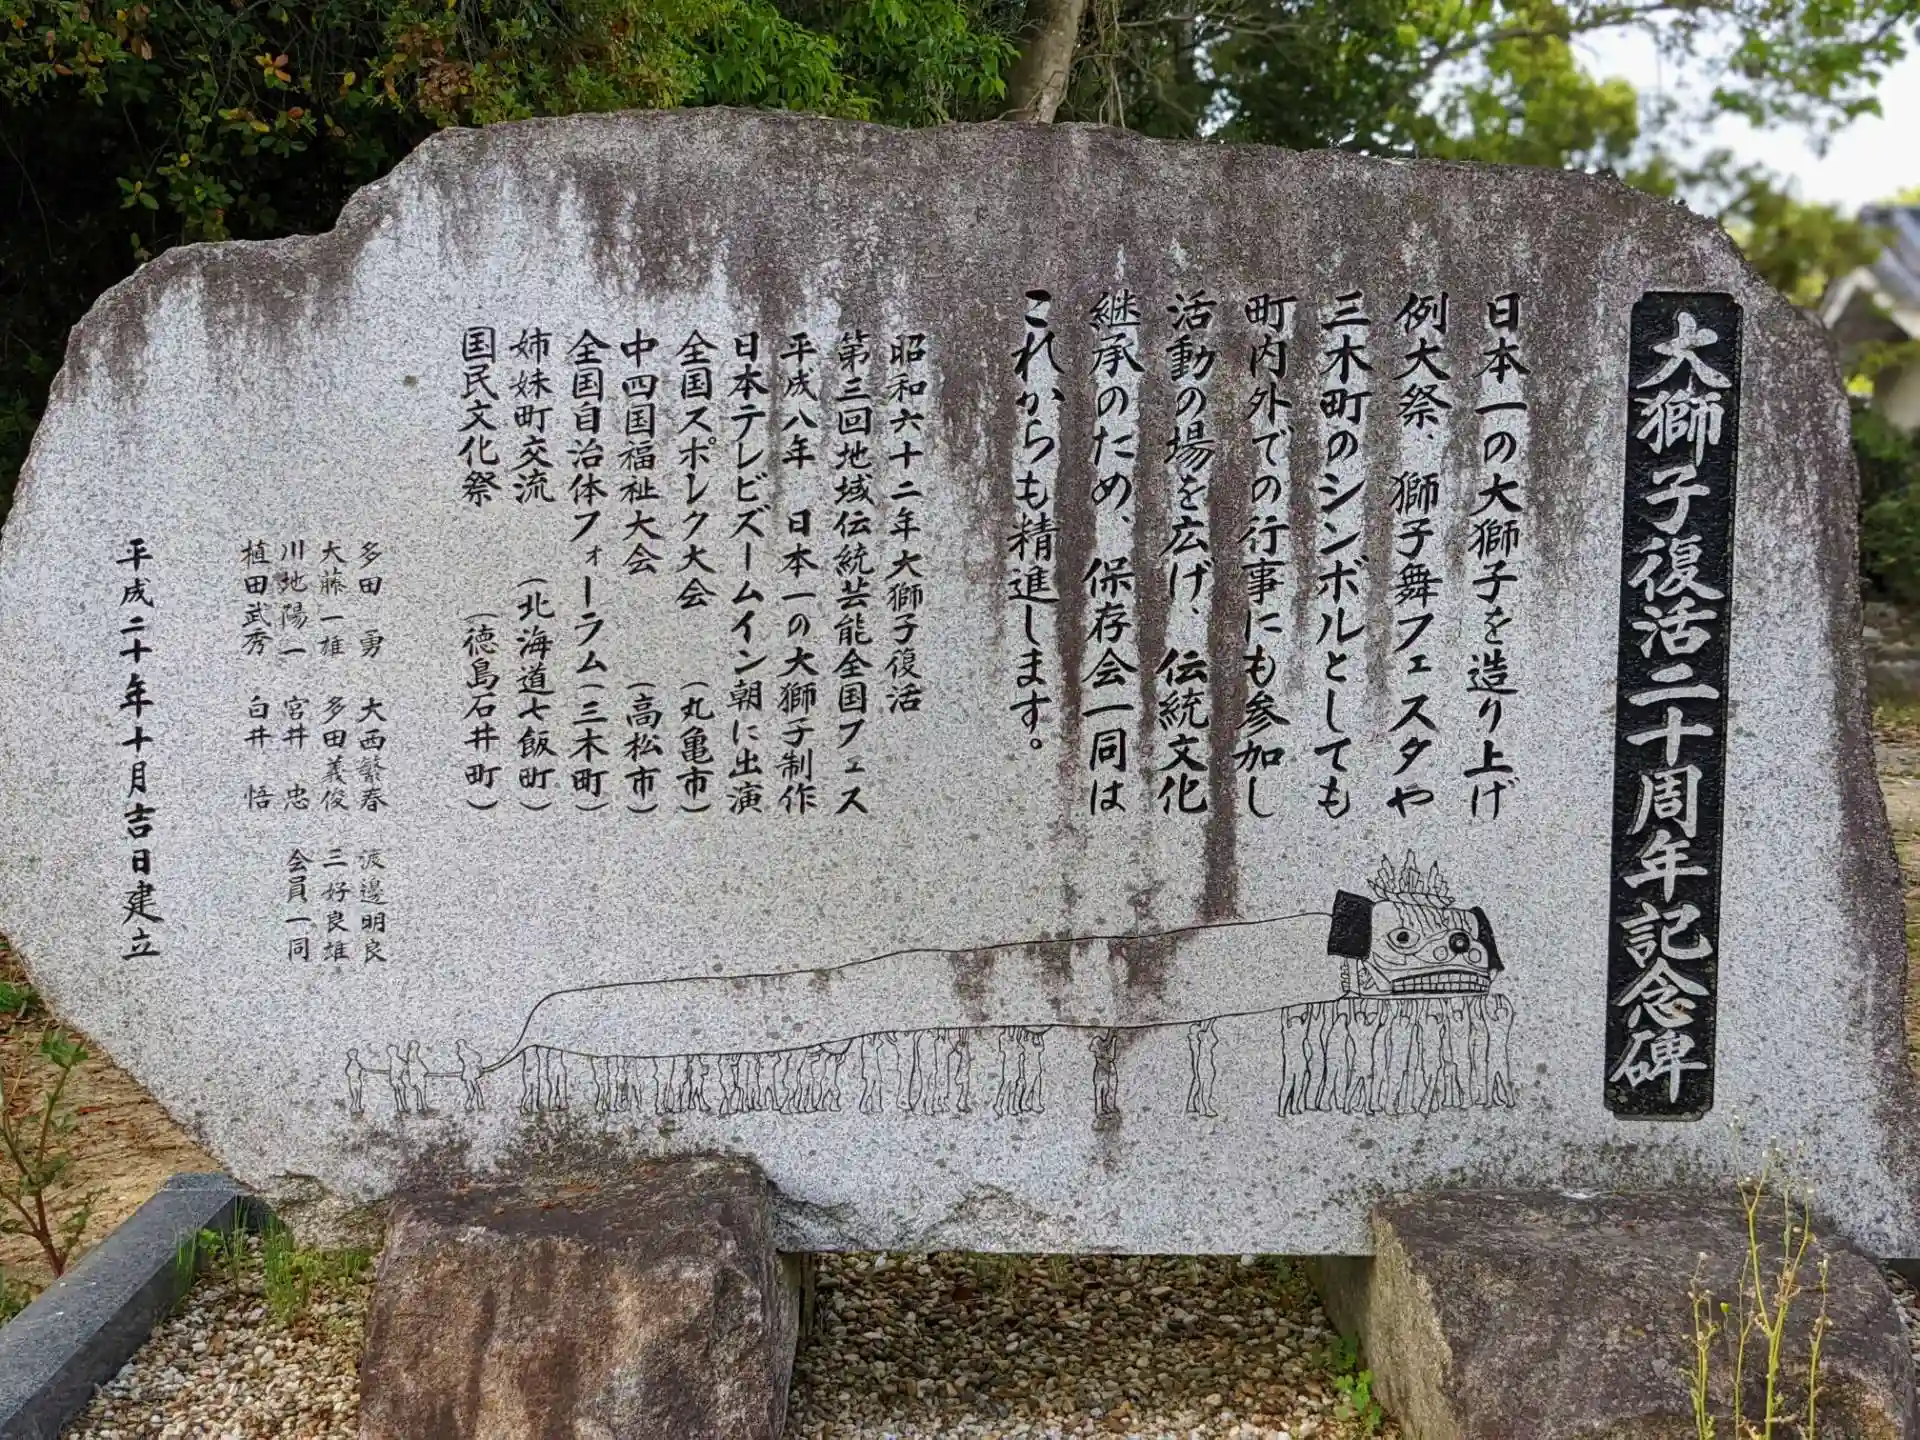 大獅子復活二十周年記念碑
日本一の大獅子を造り上げ
例大祭、獅子舞フェスタや
三木町のシンボルとしても
町内外での行事にも参加し
活動の場を広げ、伝統文化
継承のため、保存会一同は
これからも精進します。
昭和六十二年大獅子復活
第三回地域伝統芸能全国フェス
平成八年 日本一の大獅子制作
日本テレビズームイン朝に出演
全国スポレク大会 (丸亀市)
中四国福祉大会 (高松市)
全国自治体フォーラム(三木町)
姉妹町交流 (北海道七飯町)
国民文化祭 (徳島石井町)
多田 勇 大西繁春 渡邊明良
大藤一雄 多田義俊 三好良雄
川地陽一 宮井 忠 会員一同
植田武秀 白井 悟
平成二十年十月吉日建立